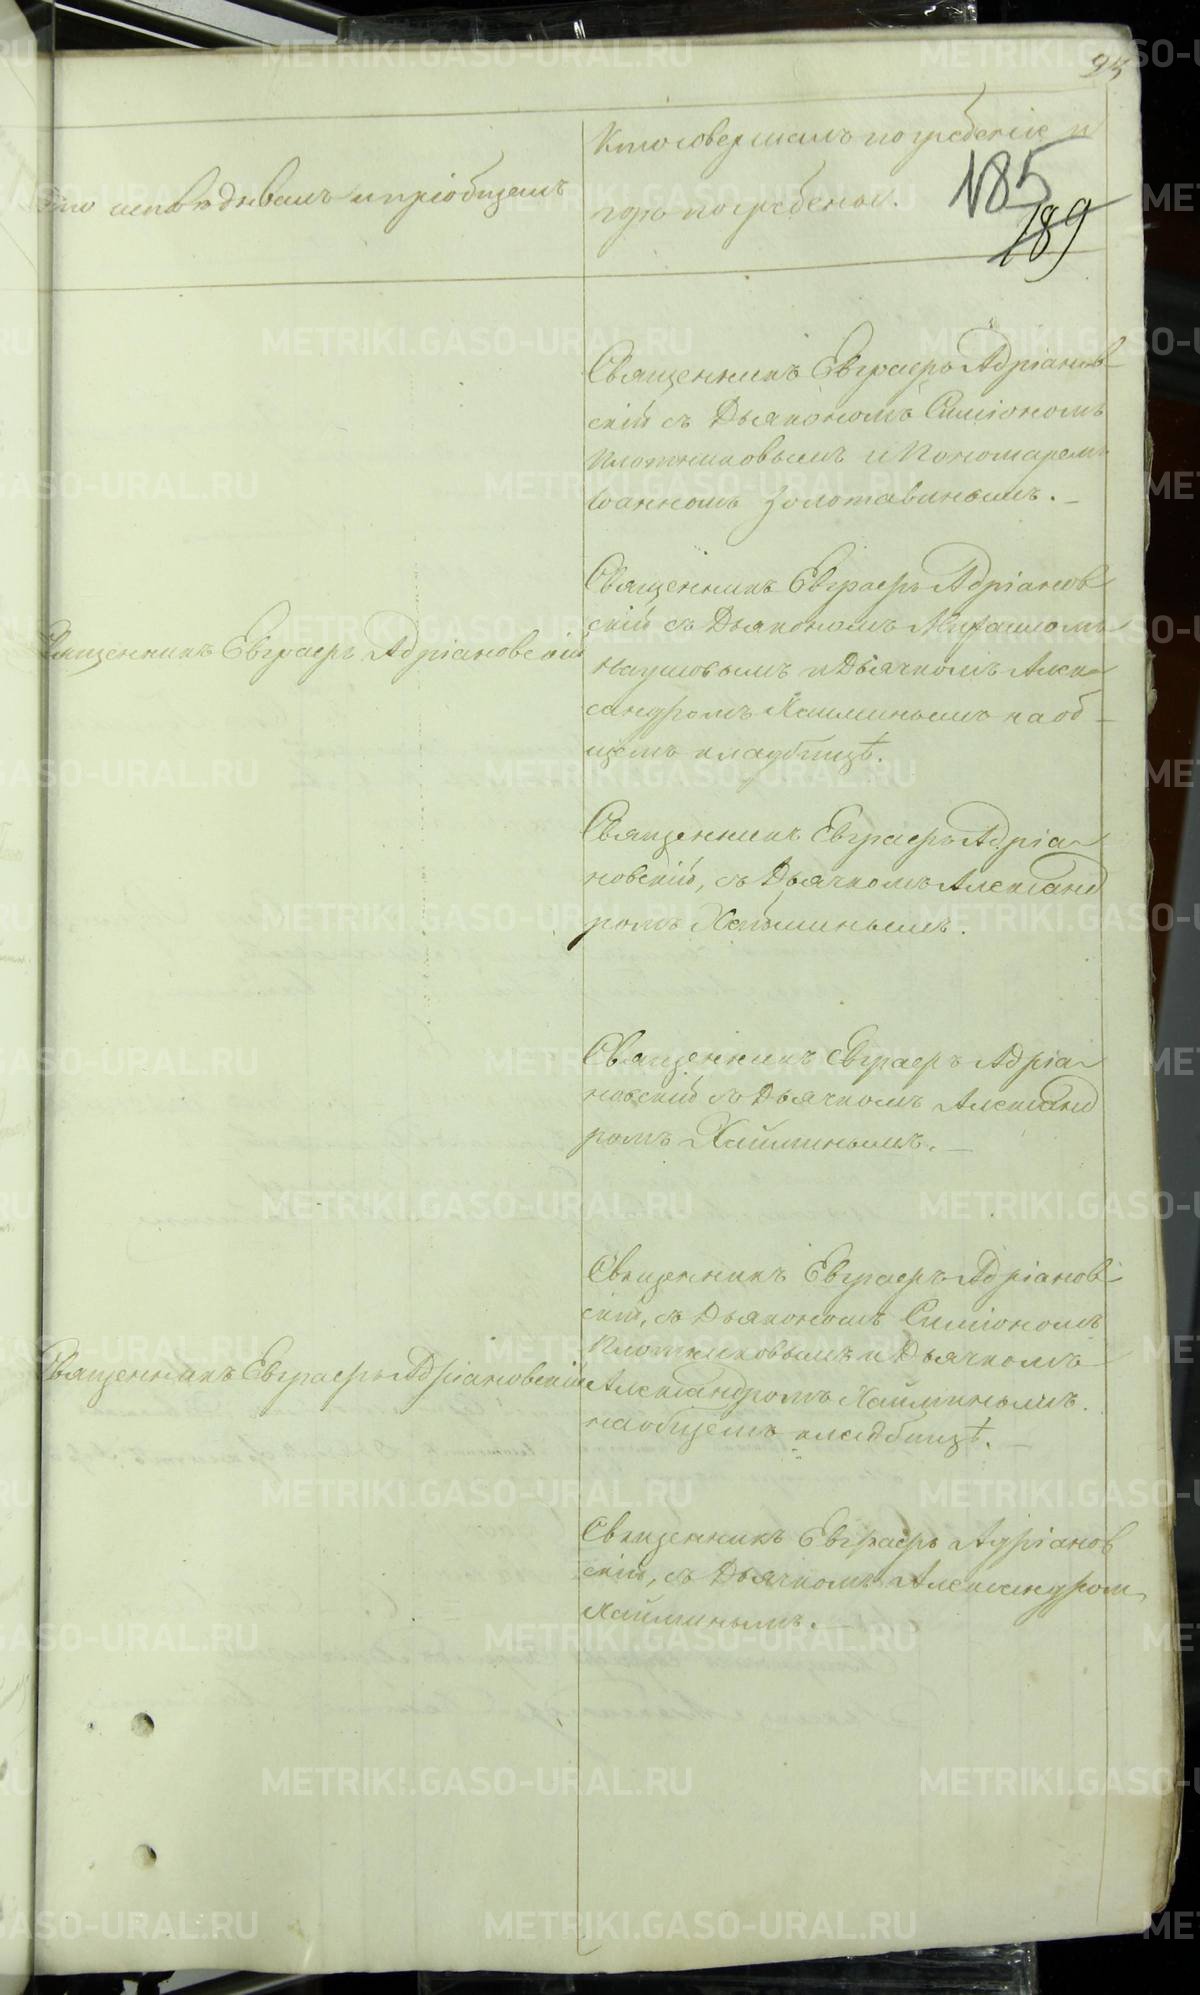 95
Кто исповѣдывалъ и пріобщалъ
Кто совершалъ погребеніе и
гдѣ погребены.
185
189
Священникъ Евграфъ Адріанов-
скій съ Дьякономъ Симіономъ
Плотниковымъ и Пономаремъ
Іоанномъ Золотавинымъ.
Священникъ Евграфъ Адріановскій
Священникъ Евграфъ Адріанов
скій съ Дьякономъ Михаиломъ
Наумовымъ и Дьячкомъ Алек-
сандромъ Хайминымъ на об-
щемъ кладбищѣ.
Священникъ Евграфъ Адріа-
новскій, съ Дьячкомъ Александ
ромъ Хайминымъ.
Священникъ Евграфъ Адріа-
новскій съ Дьячкомъ Александ
ромъ Хайминымъ.
Священникъ Евграфъ Адріановскій
Священникъ Евграфъ Адріанов-
скій, съ Дьякономъ Симіономъ
Плотниковымъ и Дьячкомъ
Александромъ Хайминымъ.
на общемъ кладбищѣ.
Священникъ Евграфъ Адріанов
скій, съ Дьячкомъ Александром
Хайминымъ.
METRIKI.GASO-URAL.RU